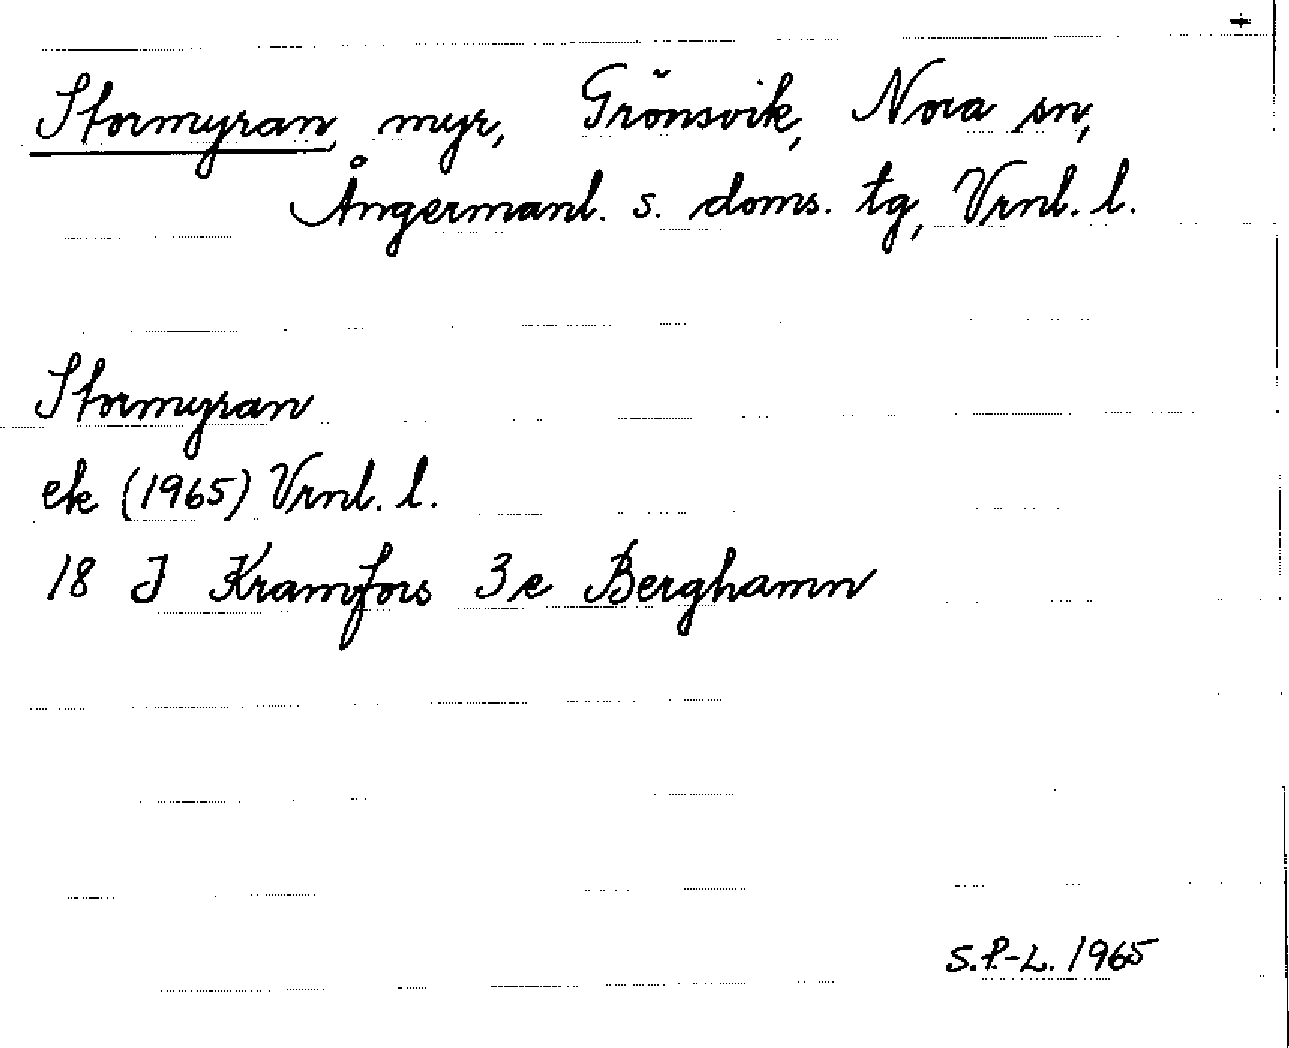 +
Stormyran, myr, Grönsvik, Nora sn,
Ångermanl. s. doms. tg, Vrnl. l.
Stormyran
ek (1965) Vrnl. l.
18 J Kramfors 3e Berghamn
S.P-L. 1965